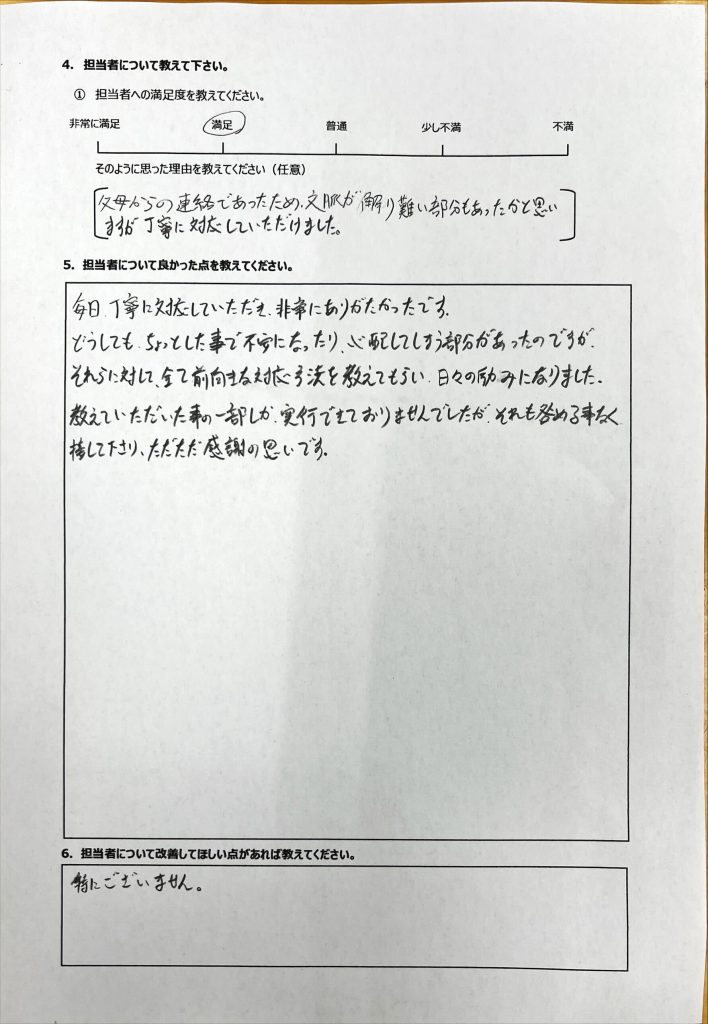 4. 担当者について教えて下さい。
① 担当者への満足度を教えてください。
非常に満足 満足 普通 少し不満 不満
そのように思った理由を教えてください（任意）
父母からの連絡であったため、文脈が解り難い部分もあったかと思い
ますが丁寧に対応していただけました。
5. 担当者について良かった点を教えてください。
毎日、丁寧に対応していただき、非常にありがたかったです。
どうしても、ちょっとした事で不安になったり、心配してしまう部分があったのですが、
それらに対して、全て前向きな対応方法を教えてもらい、日々の励みになりました。
教えていただいた事の一部しか、実行できておりませんでしたが、それも咎める事なく
接して下さり、ただただ感謝の思いです。
6. 担当者について改善してほしい点があれば教えてください。
特にございません。